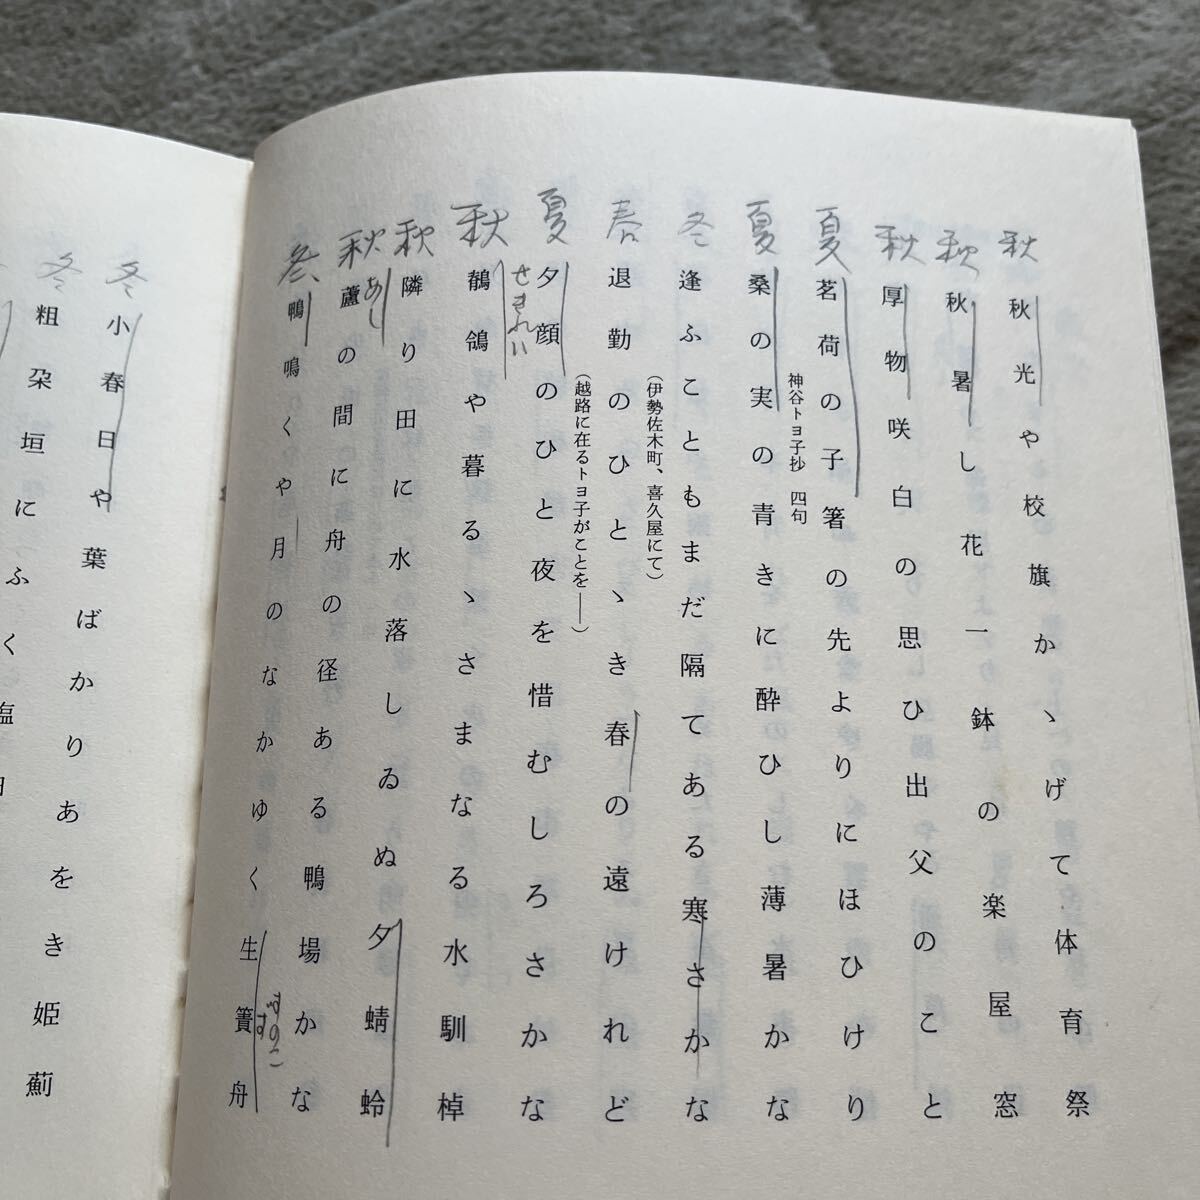 秋
秋光や校旗かゝげて体育祭
秋
秋暑し花一鉢の楽屋窓
秋
厚物咲白の思ひ出父のこと
夏
茗荷の子箸の先よりにほひけり
神谷トヨ子抄　四句
夏
桑の実の青きに酔ひし薄暑かな
冬
逢ふこともまだ隔てある寒さかな
(伊勢佐木町、喜久屋にて)
春
退勤のひとゝき春の遠けれど
(越路に在るトヨ子がことを――)
夏
夕顔のひと夜を惜むしろさかな
秋
鶺鴒や暮るゝさまなる水馴棹
せきれい
秋
隣り田に水落しゐぬ夕蜻蛉
秋
蘆の間に舟の径ある鴨場かな
あし
冬
鴨鳴くや月のなかゆく生簀舟
すのこ
す
冬
小春日や葉ばかりあをき姫薊
冬
粗朶垣にふく